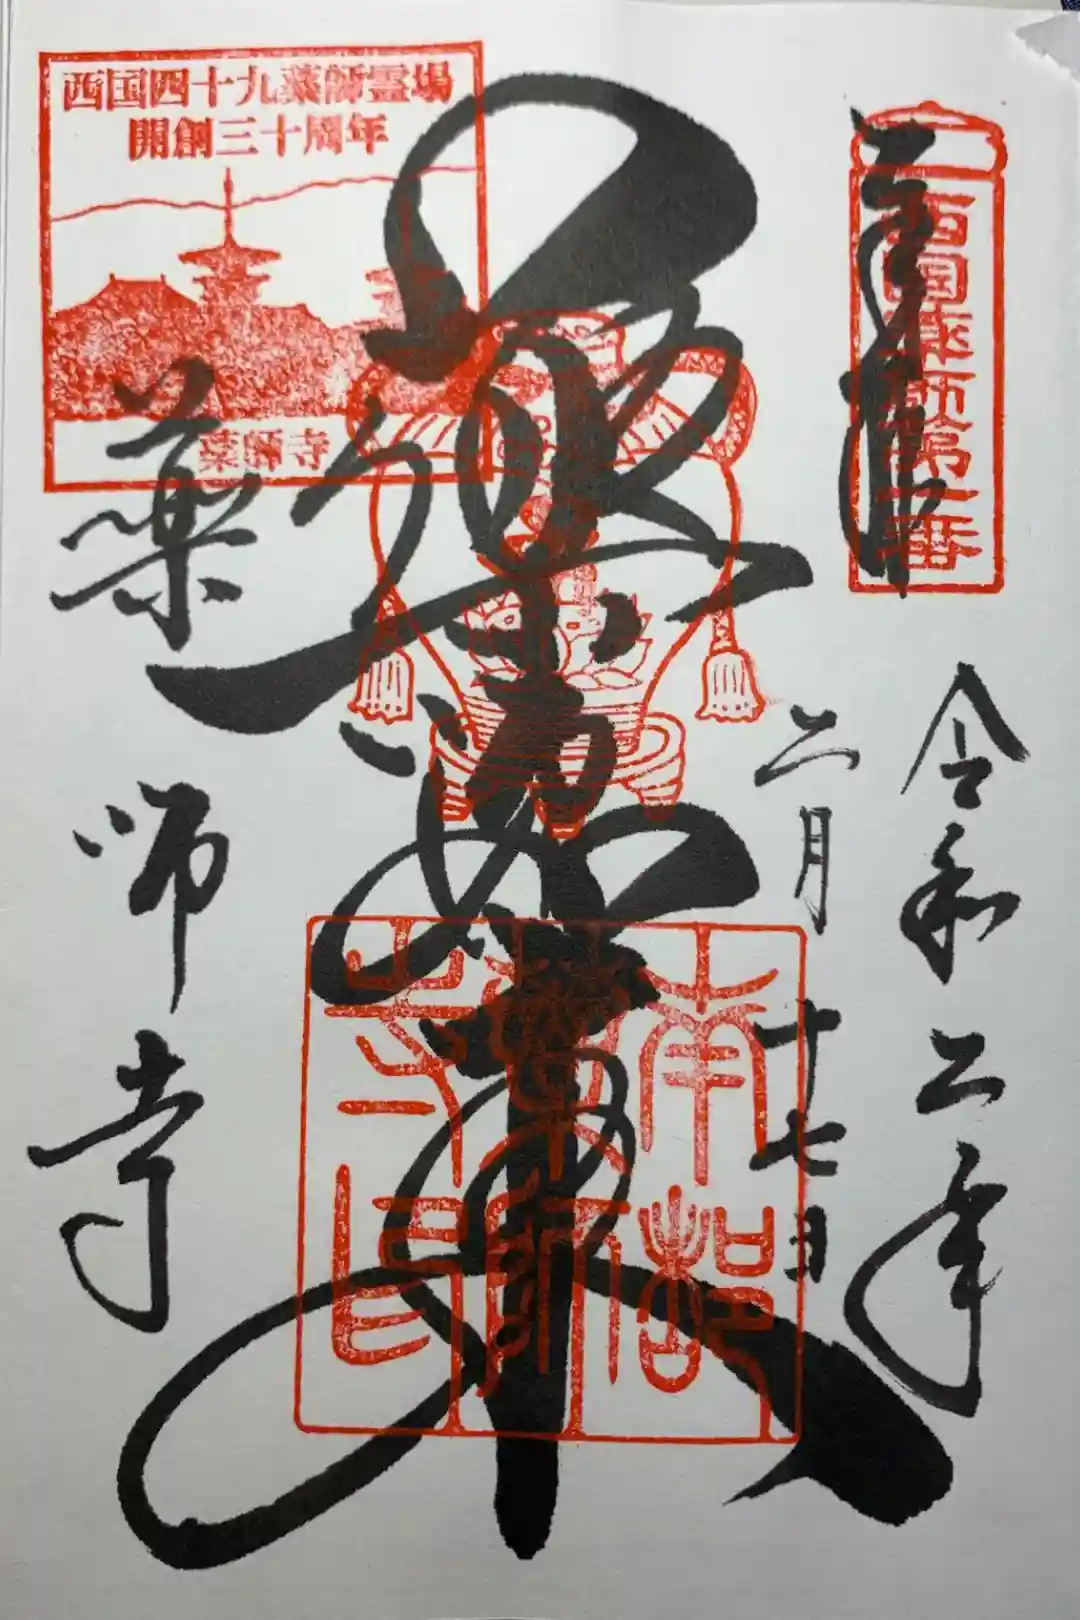 奉拝
西国薬師第一番
令和二年
二月十七日
薬師如来
南都薬師寺印
西国四十九薬師霊場
開創三十周年
薬師寺
薬師寺